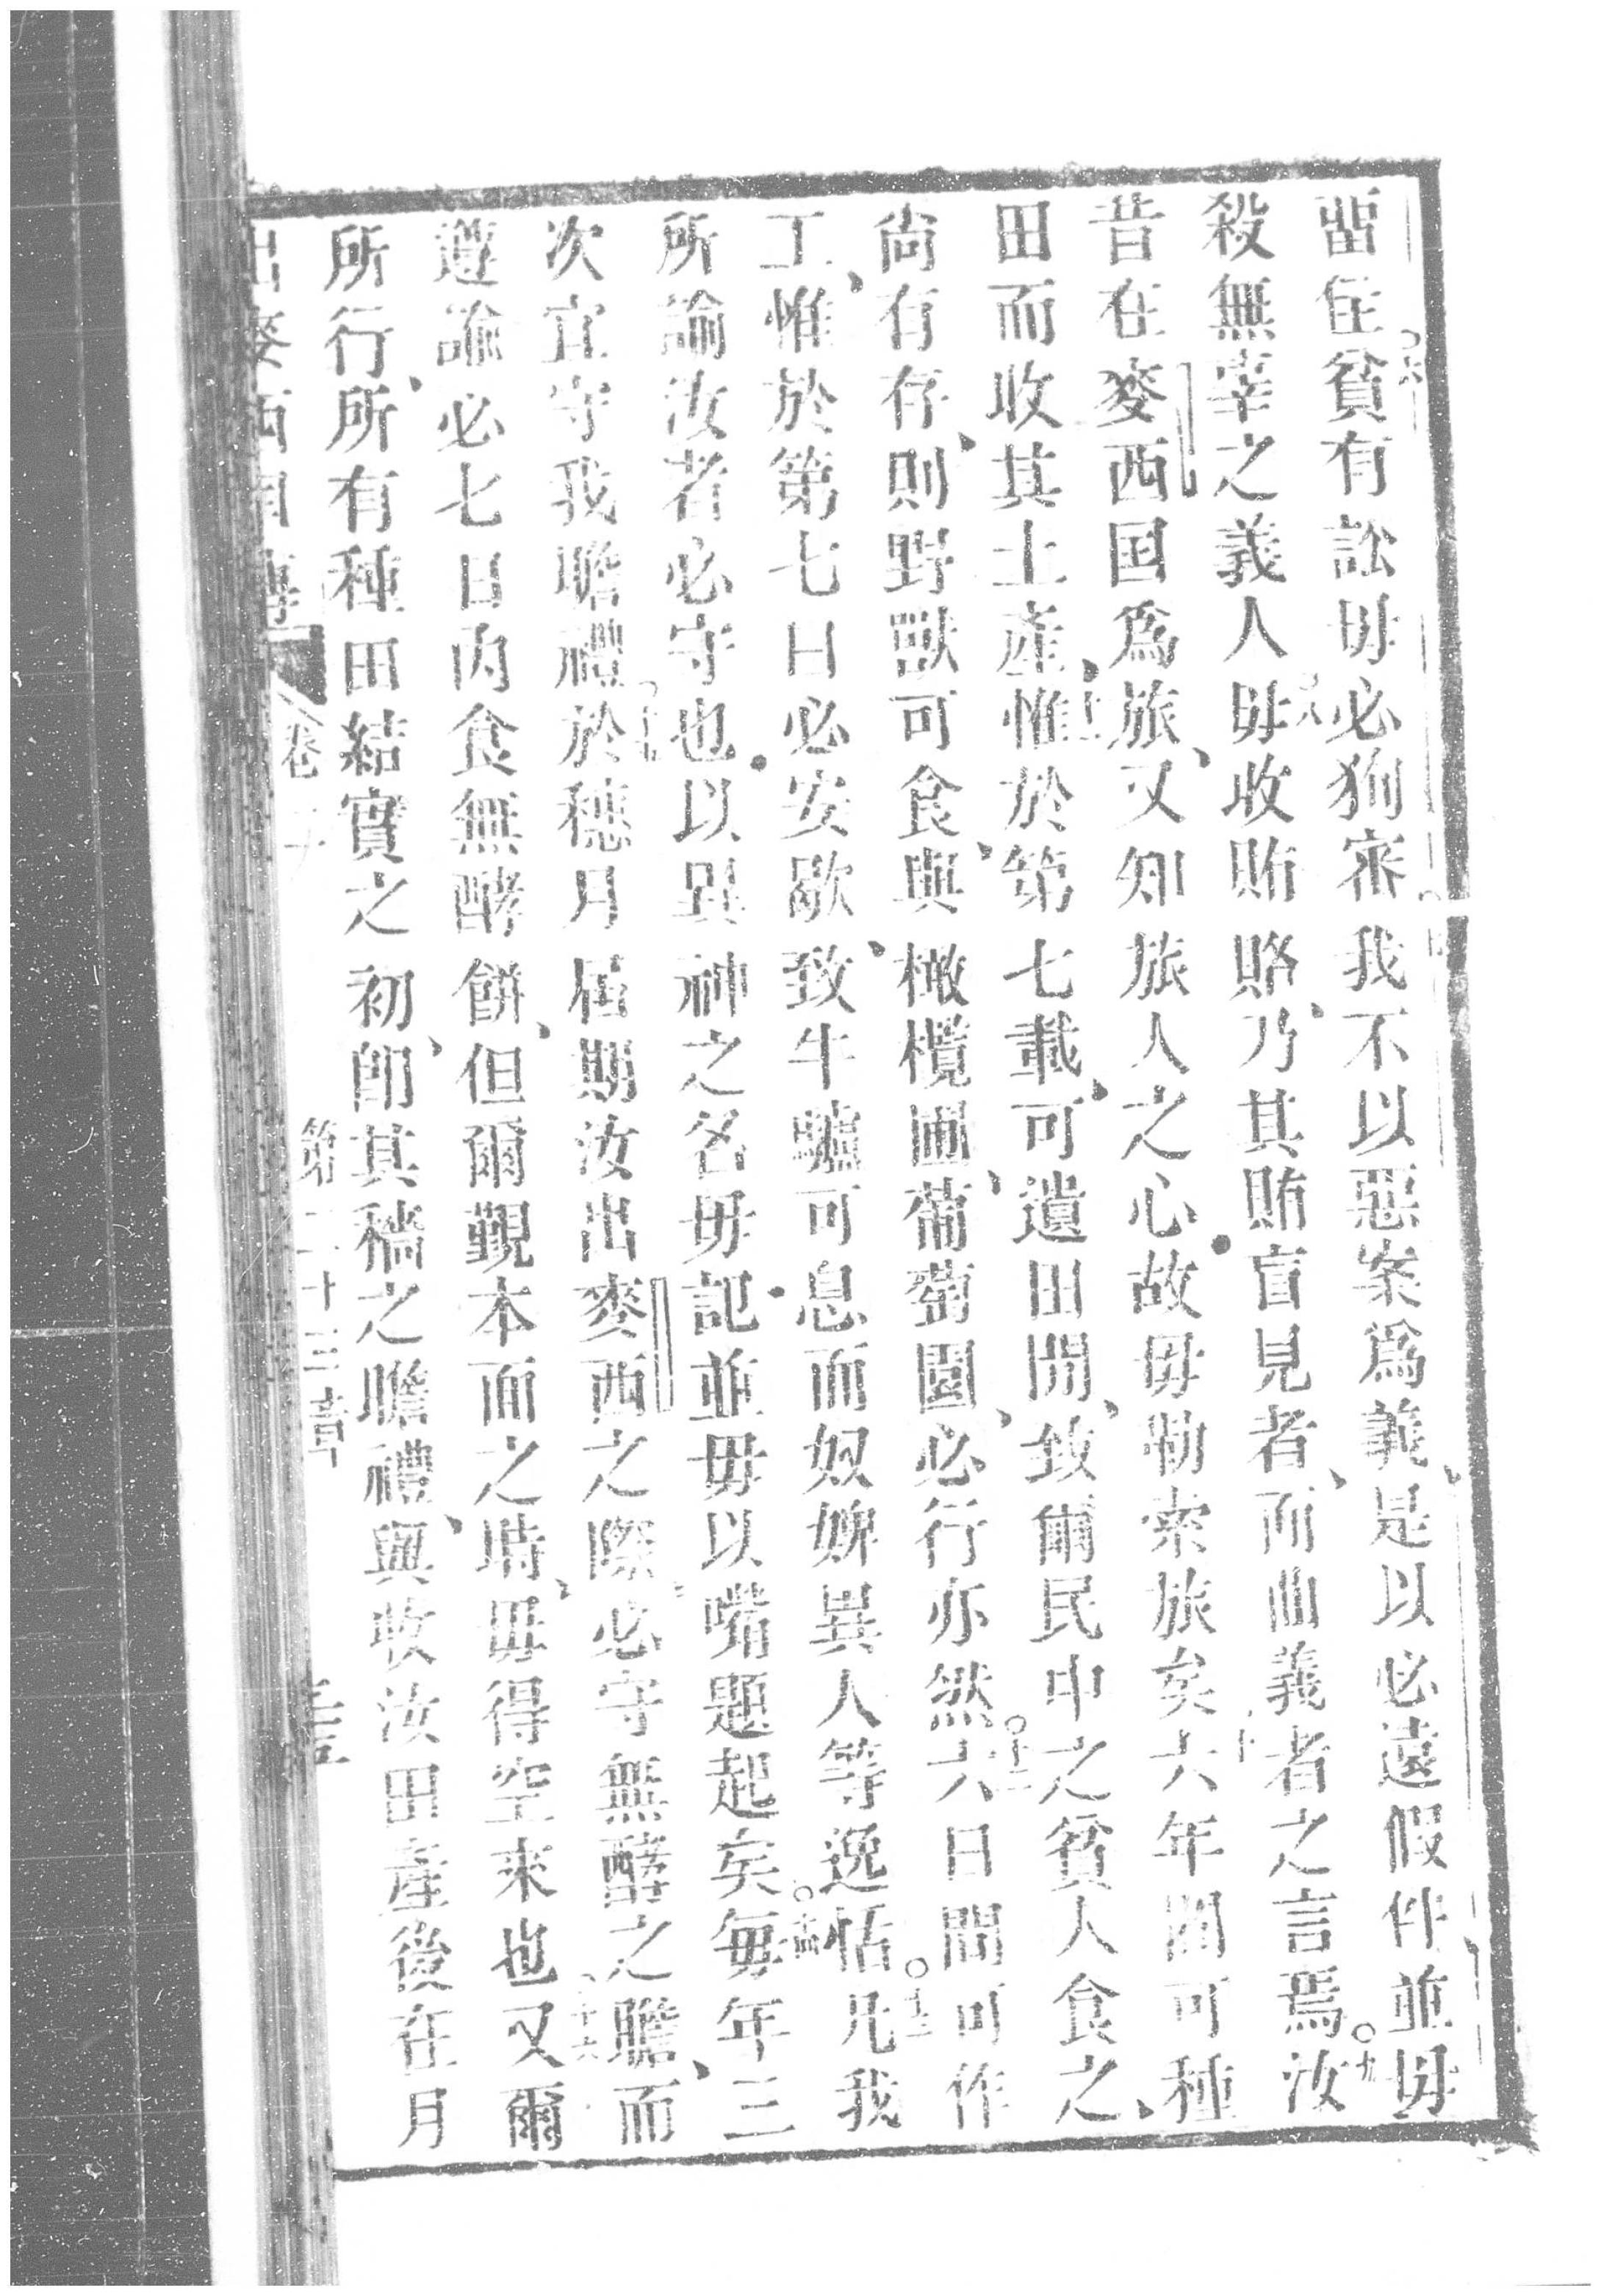 畱住貧有訟毋必狥審我不以惡案爲義是以必遠假件並毋
殺無辜之義人毋收賄賂乃其賄盲見者而曲義者之言焉汝
昔在麥西国爲旅又知旅人之心故毋勒索旅矣六年間可種
田而收其土產惟於第七載可遺田閒致爾民中之貧人食之
尚有存則野獸可食與橄欖圃葡萄園必行亦然六日間可作
工惟於第七日必安歇致牛驢可息而奴婢異人等逸恬凡我
所諭汝者必守也以異神之名毋記並毋以嘴題起矣每年三
次宜守我瞻禮於穗月屆期汝出麥西之際必守無酵之瞻而
遵諭必七日內食無酵餅但爾覲本面之時毋得空來也又爾
所行所有種田結實之初卽其穡之瞻禮與收汝田產後在月
出麥西國傳 卷二 第二十三章 三十五